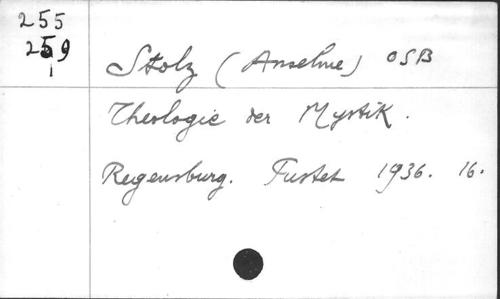 255
259
Stolz (Anselme) OSB
Theologie der Mystik.
Regensburg. Pustet 1936. 16.